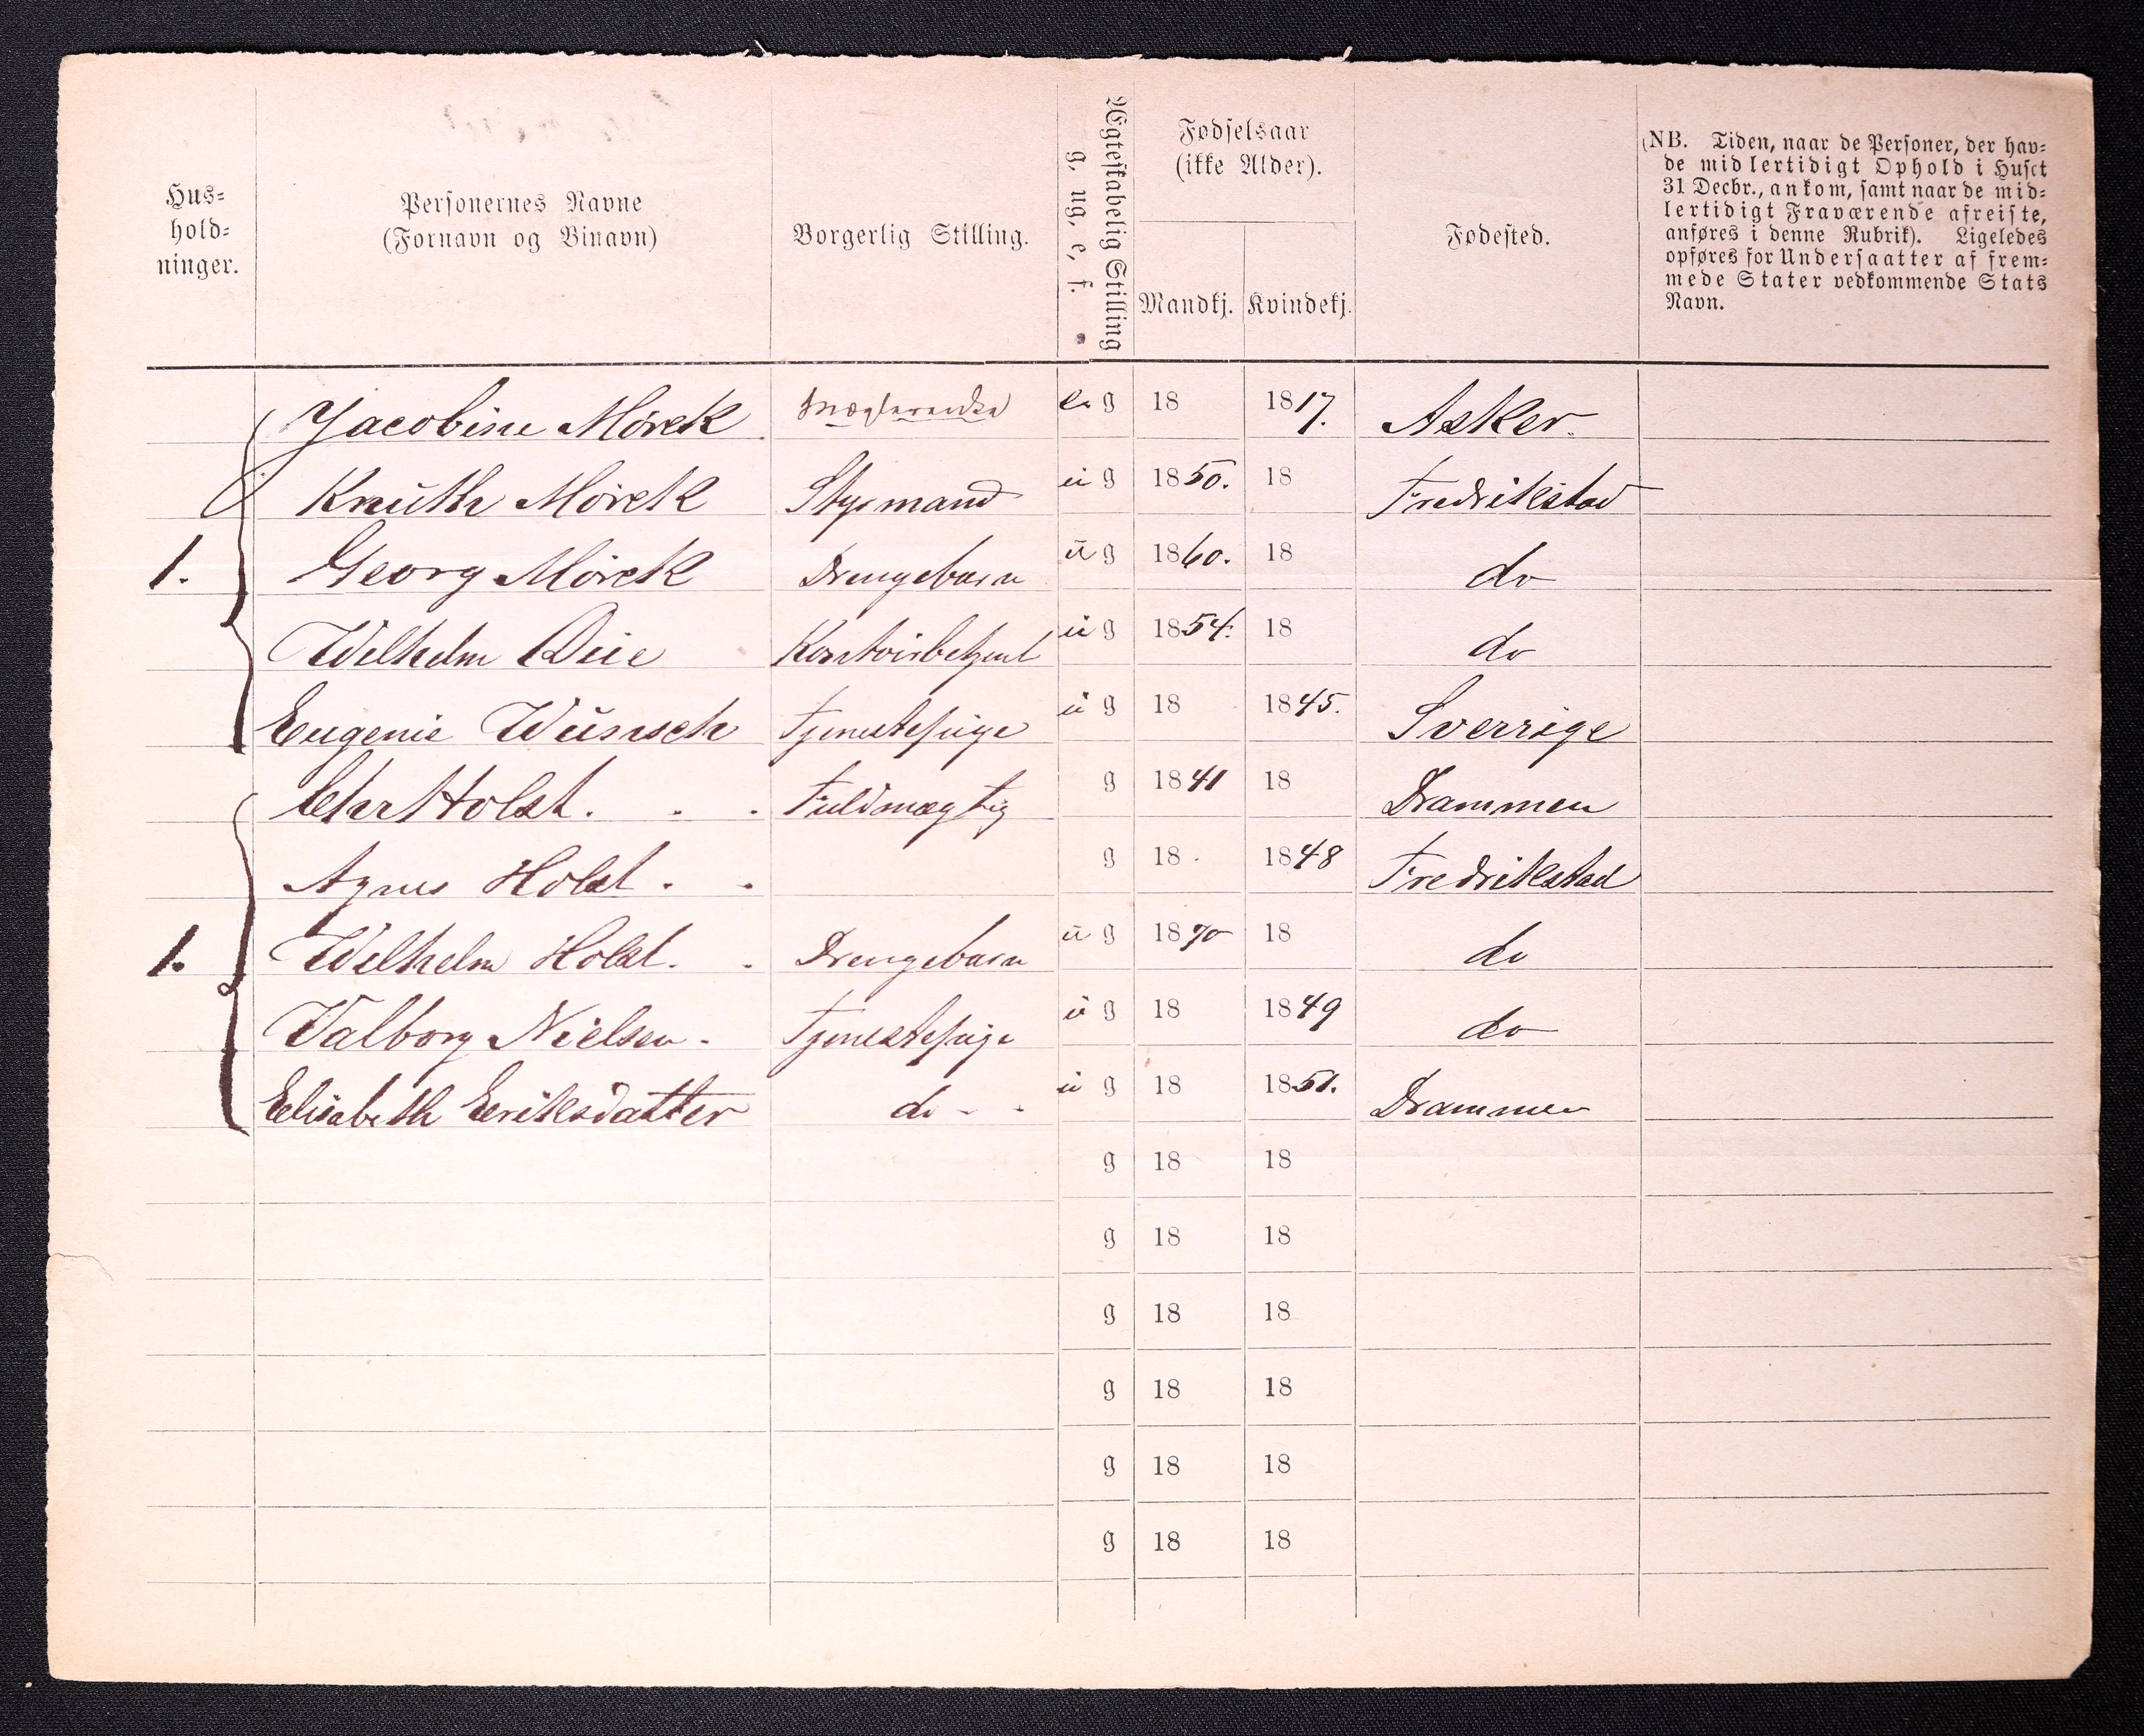 Hus-
hold-
ninger.
Personernes Navne
(Fornavn og Binavn)
Borgerlig Stilling.
Ægteskabelig Stilling
g. ug. e. f.
Fødselsaar
(ikke Alder).
Mandkj. Kvindekj.
Fødested.
(NB. Tiden, naar de Personer, der hav-
de midlertidigt Ophold i Huset
31 Decbr., ankom, samt naar de mid-
lertidigt Fraværende afreiste,
anføres i denne Rubrik). Ligeledes
opføres for Undersaatter af frem-
mede Stater vedkommende Stats
Navn.
Jacobine Mörck Mæglerenke e. g 18 1817. Asker.
Knuth Mörck Stysmand u g 1850. 18 Fredrikstad
1. Georg Mörck Drengebarn u g 1860. 18 do
Wilhelm Kontoirbetjent u g 1854. 18 do
Eugenie Wünsch Tjenestepige u g 18 1845. Sverrige
Chr Holst. Fuldmægtig g 1841 18 Drammen
Agnes Holst. g 18 1848 Fredrikstad
1. Wilhelm Holst. Drengebarn u g 1870 18 do
Valborg Nielsen. Tjenestepige u g 18 1849 do
Elisabeth Eriksdatter do - - u g 18 1851. Drammen
g 18 18
g 18 18
g 18 18
g 18 18
g 18 18
g 18 18